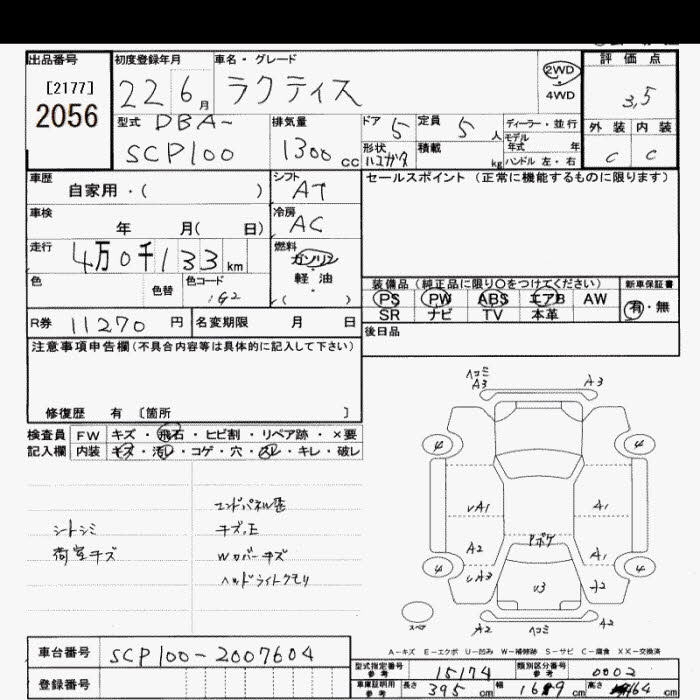 出品番号 初度登録年月 車名・グレード 評価点
[2177] 22 6月 ラクティス 2WD 3,5
2056 4WD
型式 DBA- 排気量 ドア 5 定員 5人 ディーラー・並行 外装 内装
SCP100 1300cc 形状 積載 kg モデル年式 年 C C
ハンドル 左・右
車歴 自家用・( ) シフト AT セールスポイント (正常に機能するものに限ります)
車検 年 月( 日) 冷房 AC
走行 4万0千133km 燃料 ガソリン・軽油
色 色替 色コード 1G2 ( )
装備品 (純正品に限り○をつけてください) 新車保証書
PS PW ABS エアB AW 有・無
SR ナビ TV 本革
R券 11270円 名変期限 月 日 後日品
注意事項申告欄(不具合内容等は具体的に記入して下さい)
修復歴 有 〔箇所 〕
検査員 FW キズ・飛石・ヒビ割・リペア跡・×要
記入欄 内装 キズ・汚レ・コゲ・穴・スレ・キレ・破レ
シートシミ
荷室キズ
エンドパネル歪
キズ,E
Wカバーキズ
ヘッドライトクモリ
ヘコミ
A3 A3
4 4
UA1 A1
A2 Pボケ A1
4 UA3 U3 A2 4
スペア A2 ヘコミ A2
A-キズ E-エクボ U-凹み W-補修跡 S-サビ C-腐食 XX-交換済
車台番号 SCP100-2007604
登録番号
型式指定番号 参考 15174 類別区分番号 参考 0002
車庫証明用 参考 長さ 395cm 幅 169cm 高さ 164cm